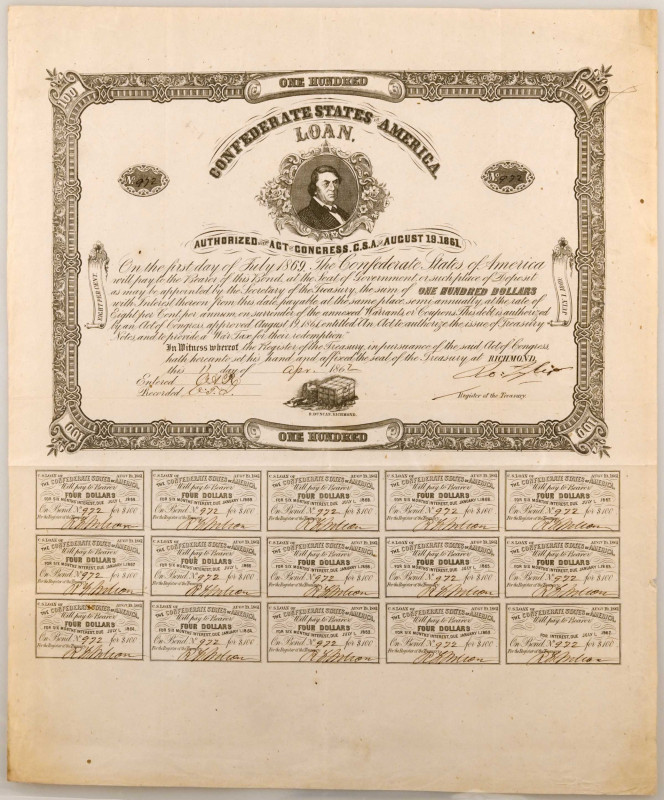 ONE HUNDRED
100
100
CONFEDERATE STATES OF AMERICA.
LOAN.
No 972
No 972
AUTHORIZED BY ACT OF CONGRESS, C.S.A. OF AUGUST 19, 1861.
EIGHT PER CENT.
JULY 1, 1869
On the first day of July 1869, The Confederate States of America
will pay to the Bearer of this Bond, at the Seat of Government or such place of Deposit
as may be appointed by the Secretary of the Treasury, the sum of ONE HUNDRED DOLLARS
with Interest thereon from this date, payable at the same place, semi annually, at the rate of
Eight per Cent per annum, on surrender of the annexed Warrants, or Coupons. This debt is authorized
by an Act of Congress, approved August 19, 1861, entitled An Act to authorize the issue of Treasury
Notes, and to provide a War Tax for their redemption.
In Witness whereof the Register of the Treasury, in pursuance of the said Act of Congress
hath hereunto set his hand and affixed the seal of the Treasury at RICHMOND,
this 11 day of Apr. 1862
Entered
Recorded
Ro. Tyler
Register of the Treasury
B. DUNCAN, RICHMOND.
100
100
ONE HUNDRED
C.S. LOAN OF AUGT 19, 1861
THE CONFEDERATE STATES OF AMERICA,
Will pay to Bearer
FOUR DOLLARS
FOR SIX MONTHS INTEREST, DUE JULY 1, 1869.
On Bond No 972 for $100
For the Register of the Treasury
C.S. LOAN OF AUGT 19, 1861
THE CONFEDERATE STATES OF AMERICA,
Will pay to Bearer
FOUR DOLLARS
FOR SIX MONTHS INTEREST, DUE JANUARY 1, 1869.
On Bond No 972 for $100
For the Register of the Treasury
C.S. LOAN OF AUGT 19, 1861
THE CONFEDERATE STATES OF AMERICA,
Will pay to Bearer
FOUR DOLLARS
FOR SIX MONTHS INTEREST, DUE JULY 1, 1868.
On Bond No 972 for $100
For the Register of the Treasury
C.S. LOAN OF AUGT 19, 1861
THE CONFEDERATE STATES OF AMERICA,
Will pay to Bearer
FOUR DOLLARS
FOR SIX MONTHS INTEREST, DUE JANUARY 1, 1868.
On Bond No 972 for $100
For the Register of the Treasury
C.S. LOAN OF AUGT 19, 1861
THE CONFEDERATE STATES OF AMERICA,
Will pay to Bearer
FOUR DOLLARS
FOR SIX MONTHS INTEREST, DUE JULY 1, 1867.
On Bond No 972 for $100
For the Register of the Treasury
C.S. LOAN OF AUGT 19, 1861
THE CONFEDERATE STATES OF AMERICA,
Will pay to Bearer
FOUR DOLLARS
FOR SIX MONTHS INTEREST, DUE JANUARY 1, 1867.
On Bond No 972 for $100
For the Register of the Treasury
C.S. LOAN OF AUGT 19, 1861
THE CONFEDERATE STATES OF AMERICA,
Will pay to Bearer
FOUR DOLLARS
FOR SIX MONTHS INTEREST, DUE JULY 1, 1866.
On Bond No 972 for $100
For the Register of the Treasury
C.S. LOAN OF AUGT 19, 1861
THE CONFEDERATE STATES OF AMERICA,
Will pay to Bearer
FOUR DOLLARS
FOR SIX MONTHS INTEREST, DUE JANUARY 1, 1866.
On Bond No 972 for $100
For the Register of the Treasury
C.S. LOAN OF AUGT 19, 1861
THE CONFEDERATE STATES OF AMERICA,
Will pay to Bearer
FOUR DOLLARS
FOR SIX MONTHS INTEREST, DUE JULY 1, 1865.
On Bond No 972 for $100
For the Register of the Treasury
C.S. LOAN OF AUGT 19, 1861
THE CONFEDERATE STATES OF AMERICA,
Will pay to Bearer
FOUR DOLLARS
FOR SIX MONTHS INTEREST, DUE JANUARY 1, 1865.
On Bond No 972 for $100
For the Register of the Treasury
C.S. LOAN OF AUGT 19, 1861
THE CONFEDERATE STATES OF AMERICA,
Will pay to Bearer
FOUR DOLLARS
FOR SIX MONTHS INTEREST, DUE JULY 1, 1864.
On Bond No 972 for $100
For the Register of the Treasury
C.S. LOAN OF AUGT 19, 1861
THE CONFEDERATE STATES OF AMERICA,
Will pay to Bearer
FOUR DOLLARS
FOR SIX MONTHS INTEREST, DUE JANUARY 1, 1864.
On Bond No 972 for $100
For the Register of the Treasury
C.S. LOAN OF AUGT 19, 1861
THE CONFEDERATE STATES OF AMERICA,
Will pay to Bearer
FOUR DOLLARS
FOR SIX MONTHS INTEREST, DUE JULY 1, 1863.
On Bond No 972 for $100
For the Register of the Treasury
C.S. LOAN OF AUGT 19, 1861
THE CONFEDERATE STATES OF AMERICA,
Will pay to Bearer
FOUR DOLLARS
FOR SIX MONTHS INTEREST, DUE JANUARY 1, 1863.
On Bond No 972 for $100
For the Register of the Treasury
C.S. LOAN OF AUGT 19, 1861
THE CONFEDERATE STATES OF AMERICA,
Will pay to Bearer
FOR INTEREST, DUE JULY 1, 1862.
On Bond No 972 for $100
For the Register of the Treasury